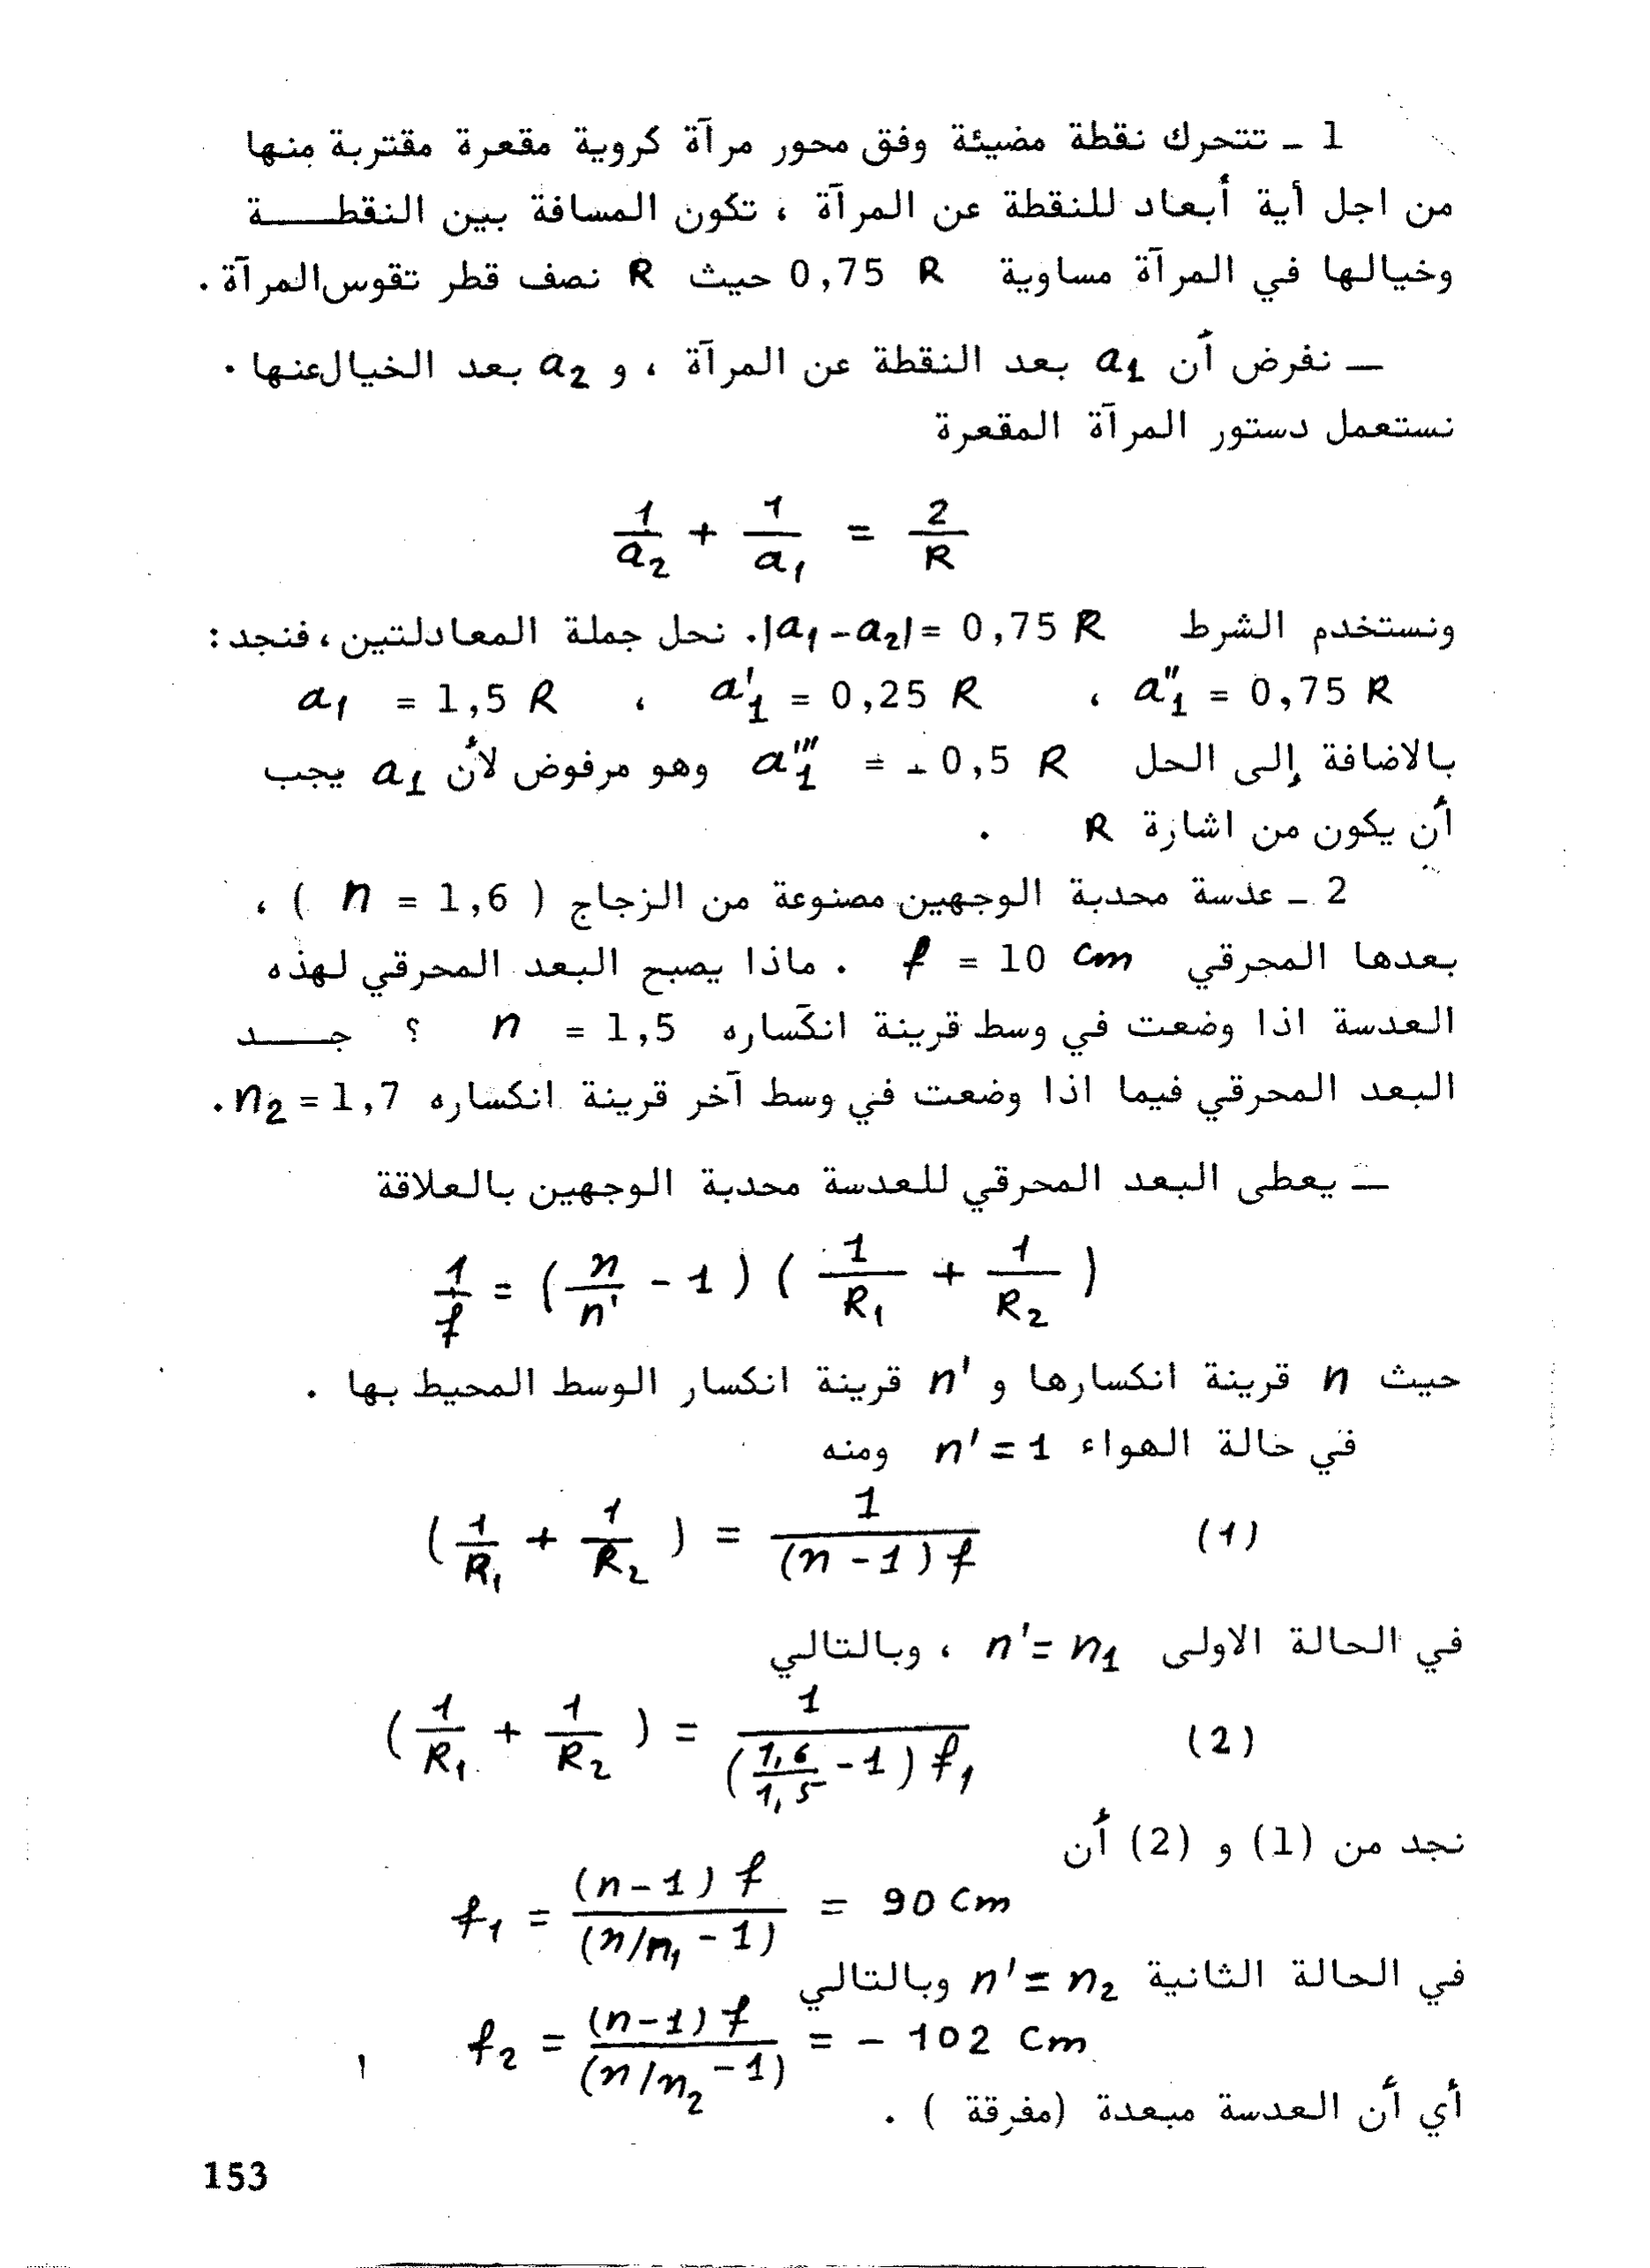 1 ـ تتحرك نقطة مضيئة وفق محور مرآة كروية مقعرة مقتربة منها
من اجل أية أبعاد للنقطة عن المرآة ، تكون المسافة بين النقطـــة
وخيالها في المرآة مساوية 0,75 R حيث R نصف قطر تقوس المرآة .
ـ نفرض أن a₁ بعد النقطة عن المرآة ، و a₂ بعد الخيال عنها .
نستعمل دستور المرآة المقعرة
1/a₂ + 1/a₁ = 2/R
ونستخدم الشرط |a₁-a₂|= 0,75 R. نحل جملة المعادلتين ، فنجد :
a₁ = 1,5 R ، a'₁ = 0,25 R ، a''₁ = 0,75 R
بالاضافة إلى الحل a'''₁ = - 0,5 R وهو مرفوض لأن a₁ يجب
أن يكون من اشارة R .
2 ـ عدسة محدبة الوجهين مصنوعة من الزجاج ( n = 1,6 ) ،
بعدها المحرقي f = 10 cm . ماذا يصبح البعد المحرقي لهذه
العدسة اذا وضعت في وسط قرينة انكساره n = 1,5 ؟ جـــد
البعد المحرقي فيما اذا وضعت في وسط آخر قرينة انكساره n₂ = 1,7.
ـ يعطى البعد المحرقي للعدسة محدبة الوجهين بالعلاقة
1/f = (n/n' - 1) ( 1/R₁ + 1/R₂ )
حيث n قرينة انكسارها و n' قرينة انكسار الوسط المحيط بها .
في حالة الهواء n' = 1 ومنه
(1/R₁ + 1/R₂) = 1/((n-1)f) (1)
في الحالة الاولى n' = n₁ ، وبالتالي
(1/R₁ + 1/R₂) = 1/((1,6/1,5 - 1) f₁) (2)
نجد من (1) و (2) أن
f₁ = (n-1) f/(n/n₁ - 1) = 90 cm
في الحالة الثانية n' = n₂ وبالتالي
f₂ = (n-1) f/(n/n₂ - 1) = - 102 cm
أي أن العدسة مبعدة (مفرقة ) .
153